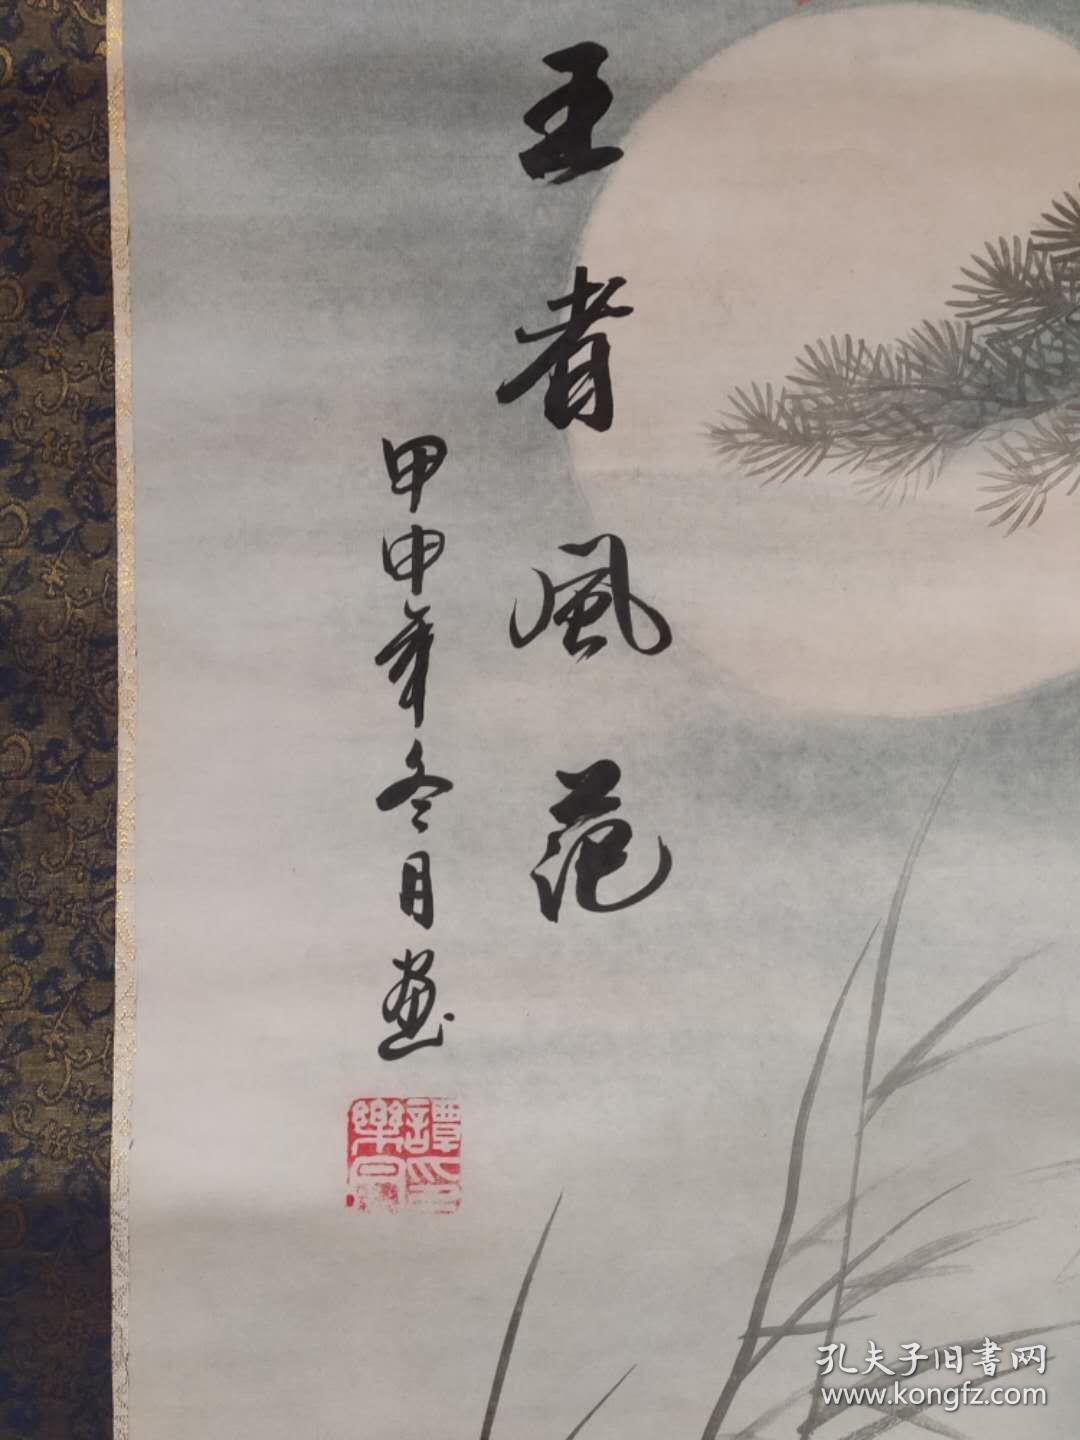 王者風范
甲申年冬月画
孔夫子旧書网
www.kongfz.com